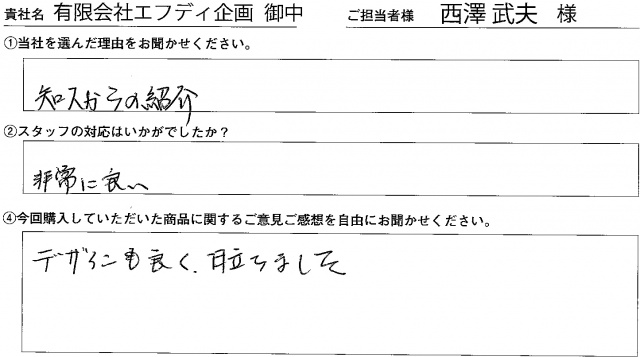 貴社名 有限会社エフディ企画 御中 ご担当者様 西澤 武夫 様
①当社を選んだ理由をお聞かせください。
知人からの紹介
②スタッフの対応はいかがでしたか？
非常に良い
④今回購入していただいた商品に関するご意見ご感想を自由にお聞かせください。
デザインも良く、目立ちました